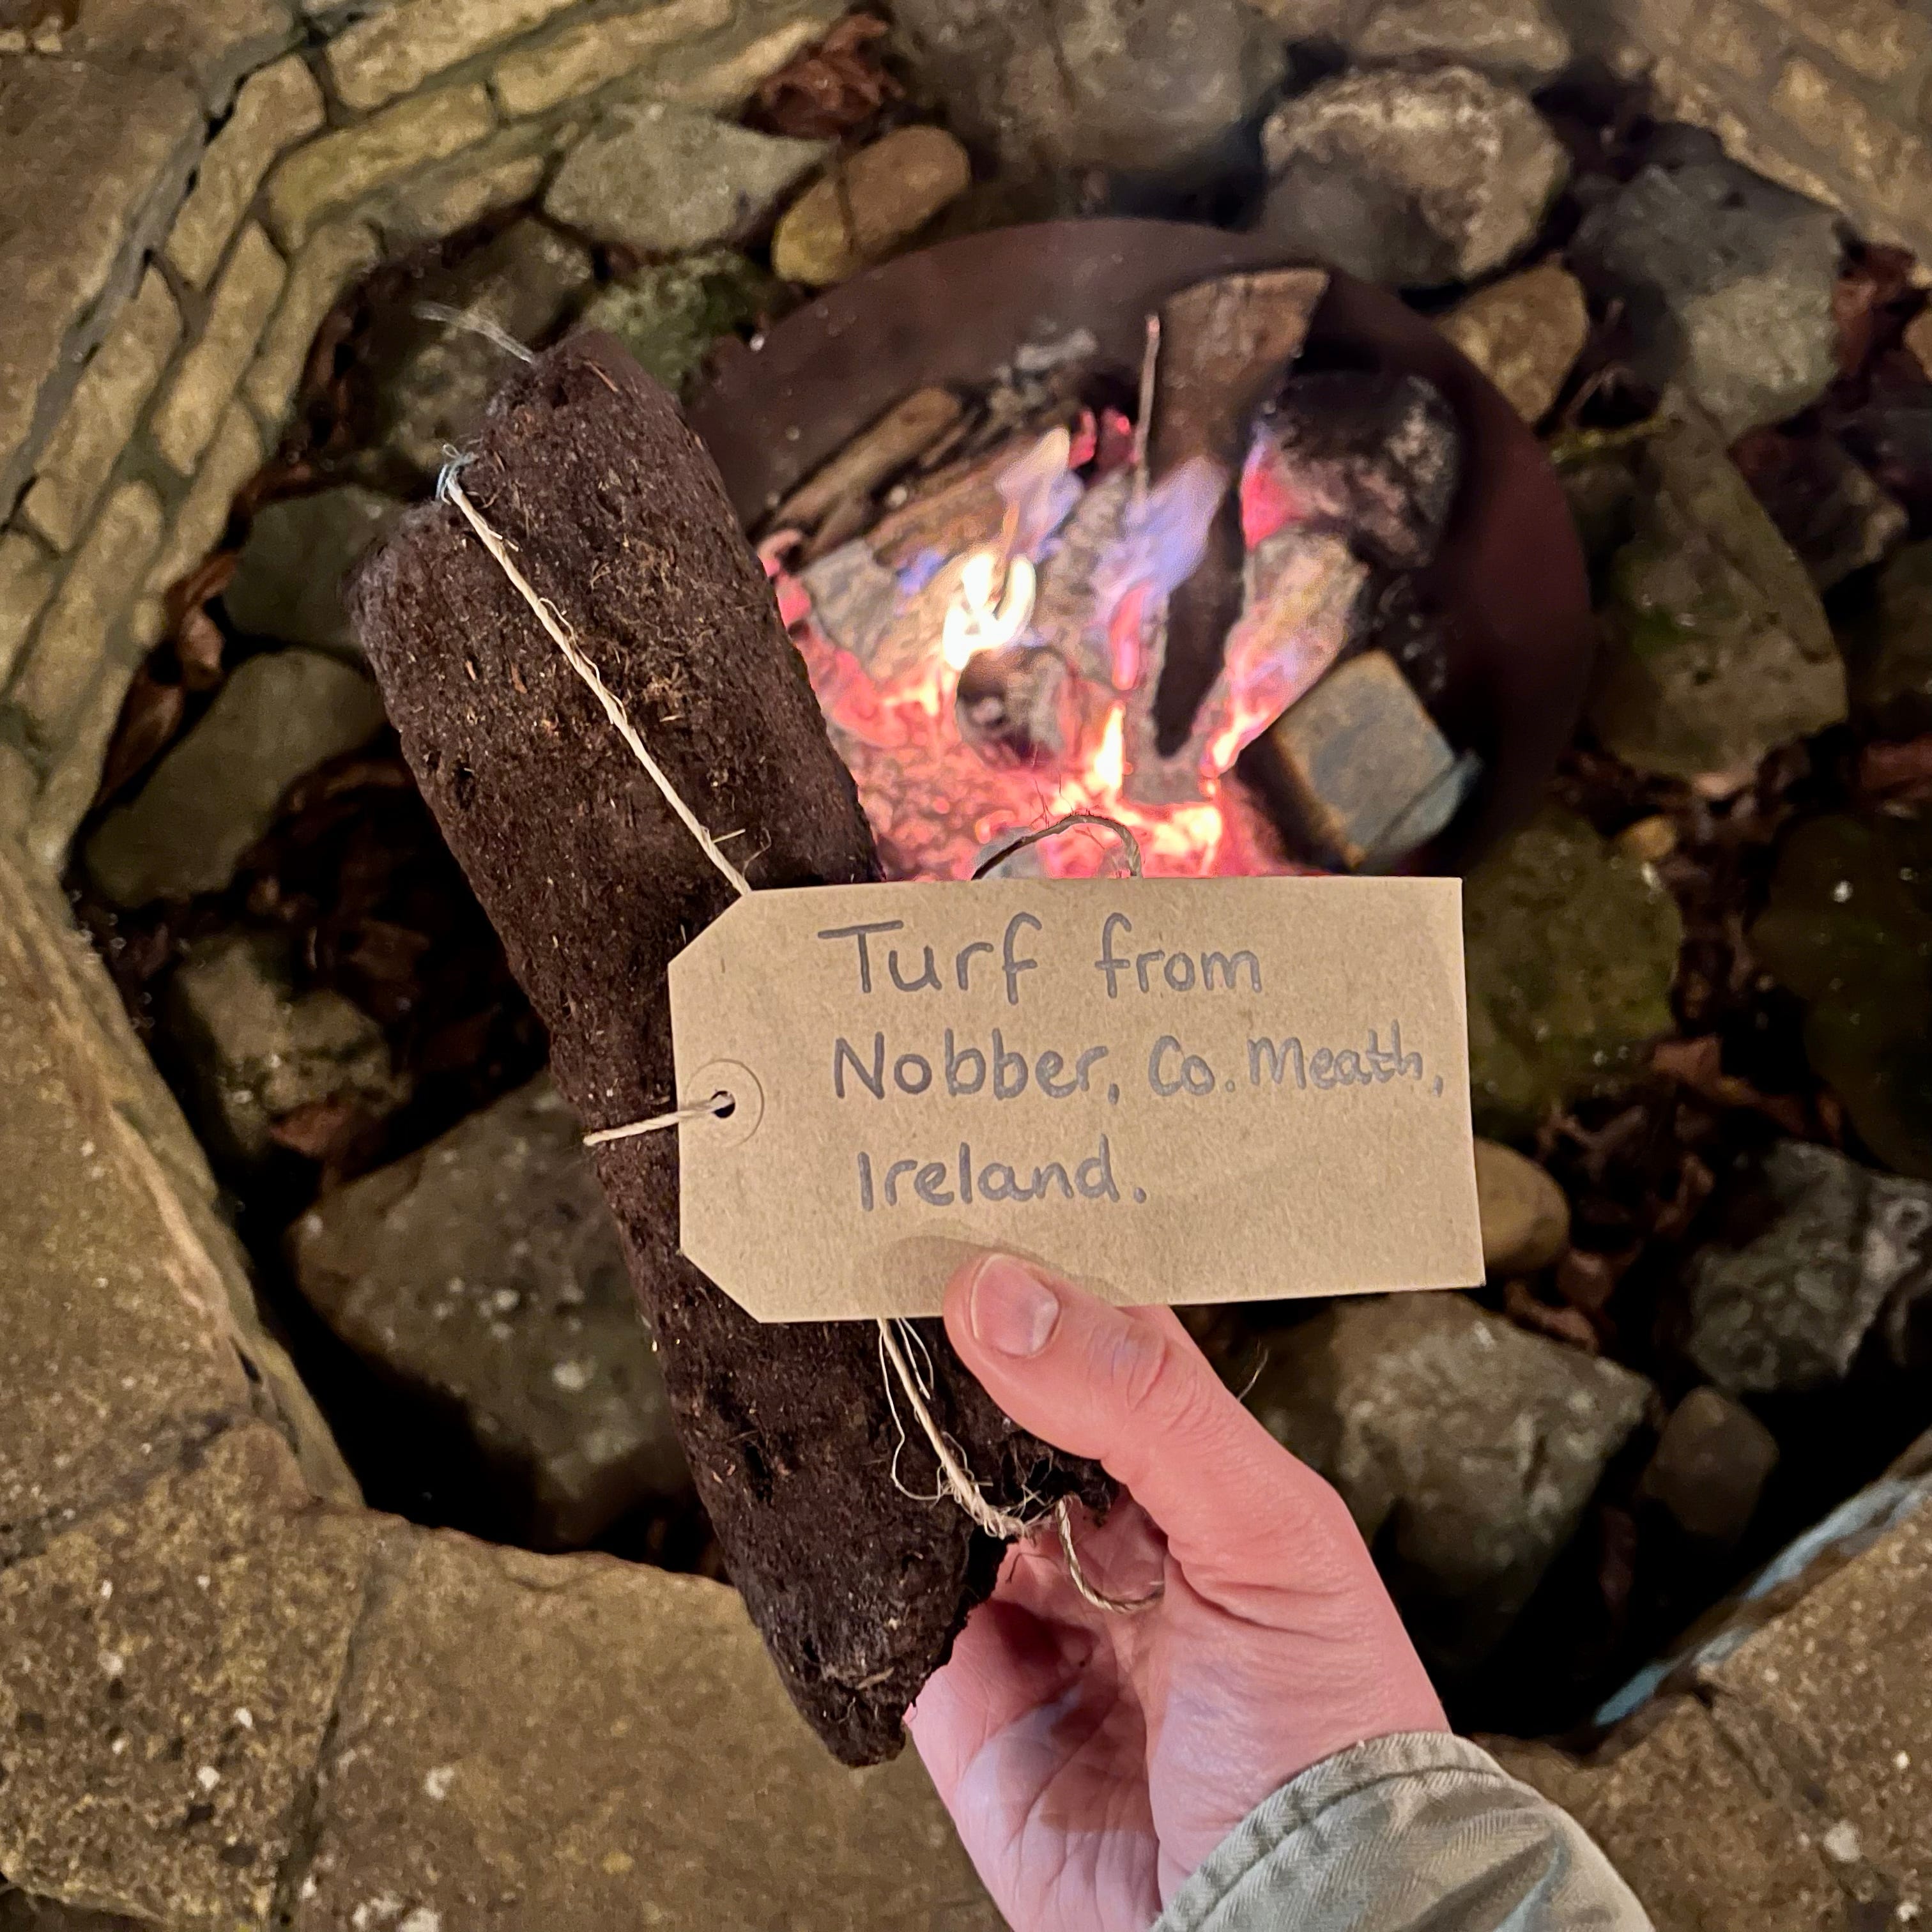 Turf from
Nobber, Co. Meath,
Ireland.